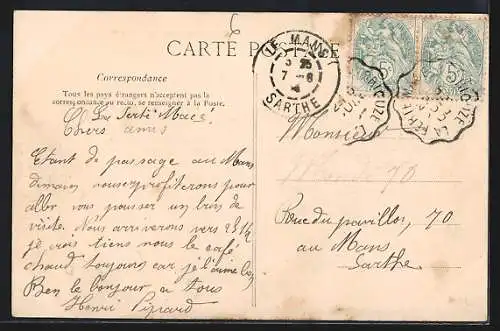 6
CARTE POSTALE
LE MANS
3 25
7 - 8
SARTHE
5
5
Correspondance
Tous les pays étrangers n'acceptent pas la
correspondance au recto, se renseigner à la Poste.
La Ferté Macé
Chers amis
Etant de passage au Mans
dimain nous profiterons pour
aller vous pousser un brin de
visite. Nous arriverons vers
je crois tiens nous le café
chaud toujours car je l'aime
Ben le bonjour a tous
Henri
Monsieur
70
Rue du pavillon, 70
au Mans
Sarthe